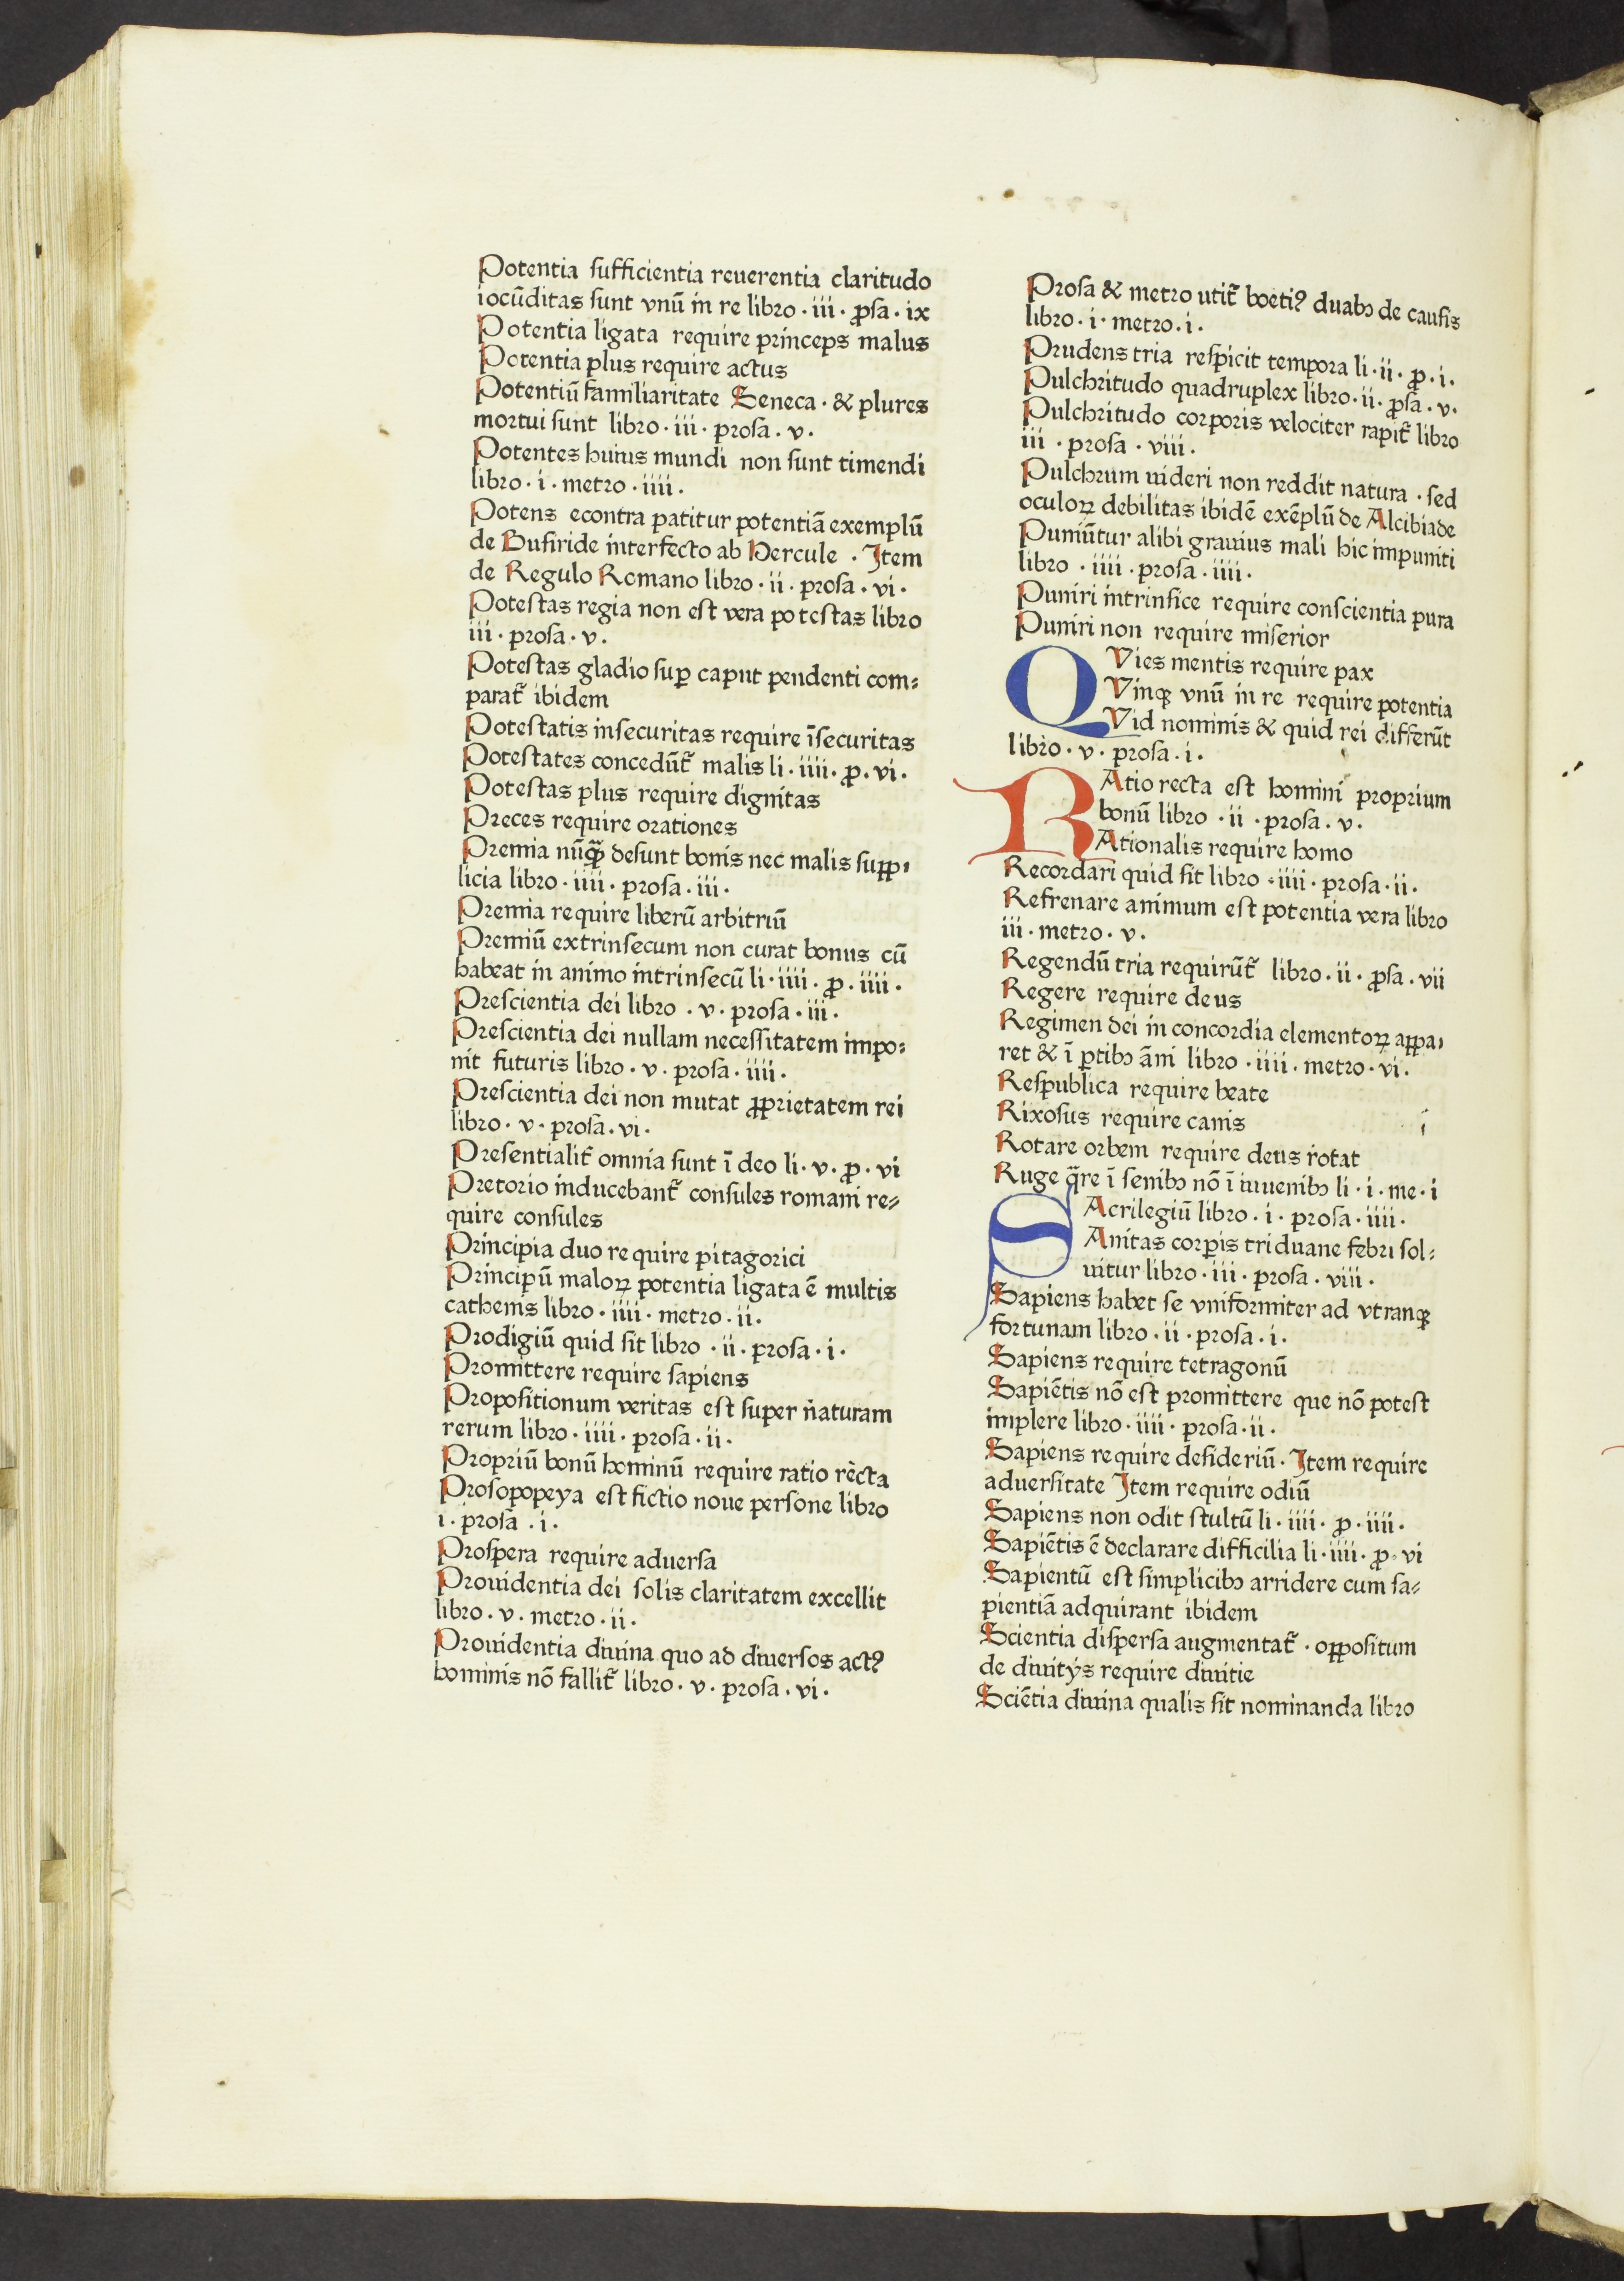 Potentia sufficientia reuerentia claritudo
iocūditas sunt vnū in re libro · iii · ꝓsa · ix
Potentia ligata require princeps malus
Potentia plus require actus
Potentiū familiaritate Seneca · & plures
mortui sunt libro · iii · prosa · v ·
Potentes huius mundi non sunt timendi
libro · i · metro · iiii ·
Potens econtra patitur potentiā exemplū
de Busiride interfecto ab Hercule · Item
de Regulo Romano libro · ii · prosa · vi ·
Potestas regia non est vera potestas libro
iii · prosa · v ·
Potestas gladio suꝑ caput pendenti com⸗
parat᷑ ibidem
Potestatis insecuritas require īsecuritas
Potestates concedūt᷑ malis li · iiii · ꝓ · vi ·
Potestas plus require dignitas
Preces require orationes
Premia nūꝙ̄ desunt bonis nec malis supp⸗
licia libro · iiii · prosa · iii ·
Premia require liberū arbitriū
Premiū extrinsecum non curat bonus cū
habeat in animo intrinsecū li · iiii · ꝓ · iiii ·
Prescientia dei libro · v · prosa · iii ·
Prescientia dei nullam necessitatem impo⸗
nit futuris libro · v · prosa · iiii ·
Prescientia dei non mutat ꝓprietatem rei
libro · v · prosa · vi ·
Presentialit᷑ omnia sunt ī deo li · v · ꝓ · vi
Pretorio inducebant᷑ consules romani re⸗
quire consules
Principia duo require pitagorici
Principū maloꝝ potentia ligata ē multis
cathenis libro · iiii · metro · ii ·
Prodigiū quid sit libro · ii · prosa · i ·
Promittere require sapiens
Propositionum veritas est super naturam
rerum libro · iiii · prosa · ii ·
Propriū bonū hominū require ratio recta
Prosopopeya est fictio noue persone libro
i · prosa · i ·
Prospera require aduersa
Prouidentia dei solis claritatem excellit
libro · v · metro · ii ·
Prouidentia diuina quo ad diuersos actꝰ
hominis nō fallit᷑ libro · v · prosa · vi ·
Prosa & metro utit᷑ boetiꝰ duabꝫ de causis
libro · i · metro · i ·
Prudens tria respicit tempora li · ii · ꝓ · i ·
Pulchritudo quadruplex libro · ii · ꝓsa · v ·
Pulchritudo corporis velociter rapit᷑ libro
iii · prosa · viii ·
Pulchrum uideri non reddit natura · sed
oculoꝝ debilitas ibidē exēplū de Alcibiade
Puniūtur alibi grauius mali hic impuniti
libro · iiii · prosa · iiii ·
Puniri intrinsice require conscientia pura
Puniri non require miserior
QVies mentis require pax
Vinqꝫ vnū in re require potentia
Vid nominis & quid rei differūt
libro · v · prosa · i ·
RAtio recta est homini proprium
bonū libro · ii · prosa · v ·
Ationalis require homo
Recordari quid sit libro · iiii · prosa · ii ·
Refrenare animum est potentia vera libro
iii · metro · v ·
Regendū tria requirūt᷑ libro · ii · ꝓsa · vii
Regere require deus
Regimen dei in concordia elementoꝝ appa⸗
ret & ī ꝑtibꝫ āni libro · iiii · metro · vi ·
Respublica require beate
Rixosus require canis
Rotare orbem require deus rotat
Ruge q̄re ī senibꝫ nō ī iuuenibꝫ li · i · me · i
SAcrilegiū libro · i · prosa · iiii ·
Anitas corꝑis triduane febri sol⸗
uitur libro · iii · prosa · viii ·
Sapiens habet se vniformiter ad vtranqꝫ
fortunam libro · ii · prosa · i ·
Sapiens require tetragonū
Sapiētis nō est promittere que nō potest
implere libro · iiii · prosa · ii ·
Sapiens require desideriū · Item require
aduersitate Item require odiū
Sapiens non odit stultū li · iiii · ꝓ · iiii ·
Sapiētis ē declarare difficilia li · iiii · ꝓ · vi
Sapientū est simplicibꝫ arridere cum sa⸗
pientiā adquirant ibidem
Scientia dispersa augmentat᷑ · oppositum
de diuitÿs require diuitie
Sciētia diuina qualis sit nominanda libro